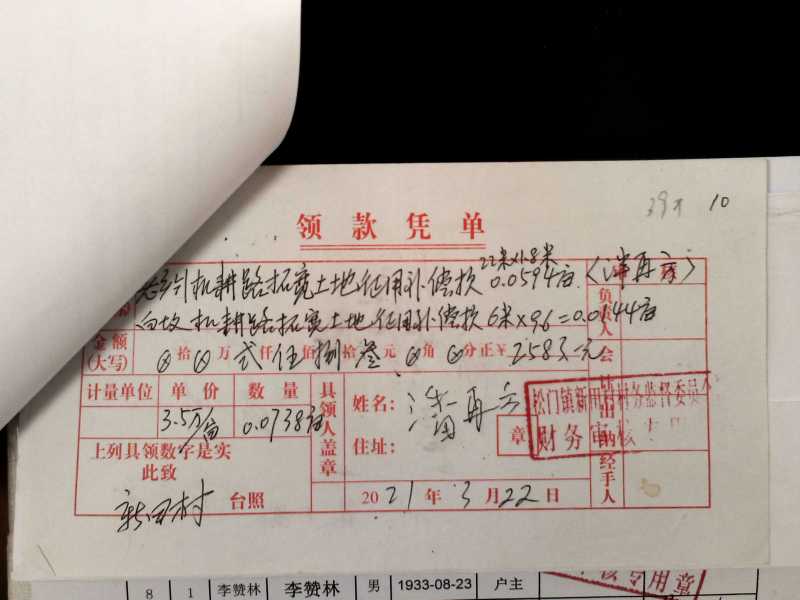 39 10
领款凭单
22米×1.8米
机耕路拓宽土地征用补偿款 0.0594亩 (潘再
机耕路拓宽土地征用补偿款 6米×96=0.0144亩
负责人
金额(大写) 拾 万 弍仟伍佰捌拾叁元 角 分正¥2583元
会
计量单位 单价 数量
3.5万/亩 0.0738亩
具领人盖章
姓名:潘再
住址:
章
松门镇新田村村务监督委员
财务审核
出纳
经手人
上列具领数字是实
此致
新田村 台照
2021年3月22日
8 1 李赞林 李赞林 男 1933-08-23 户主
专用章